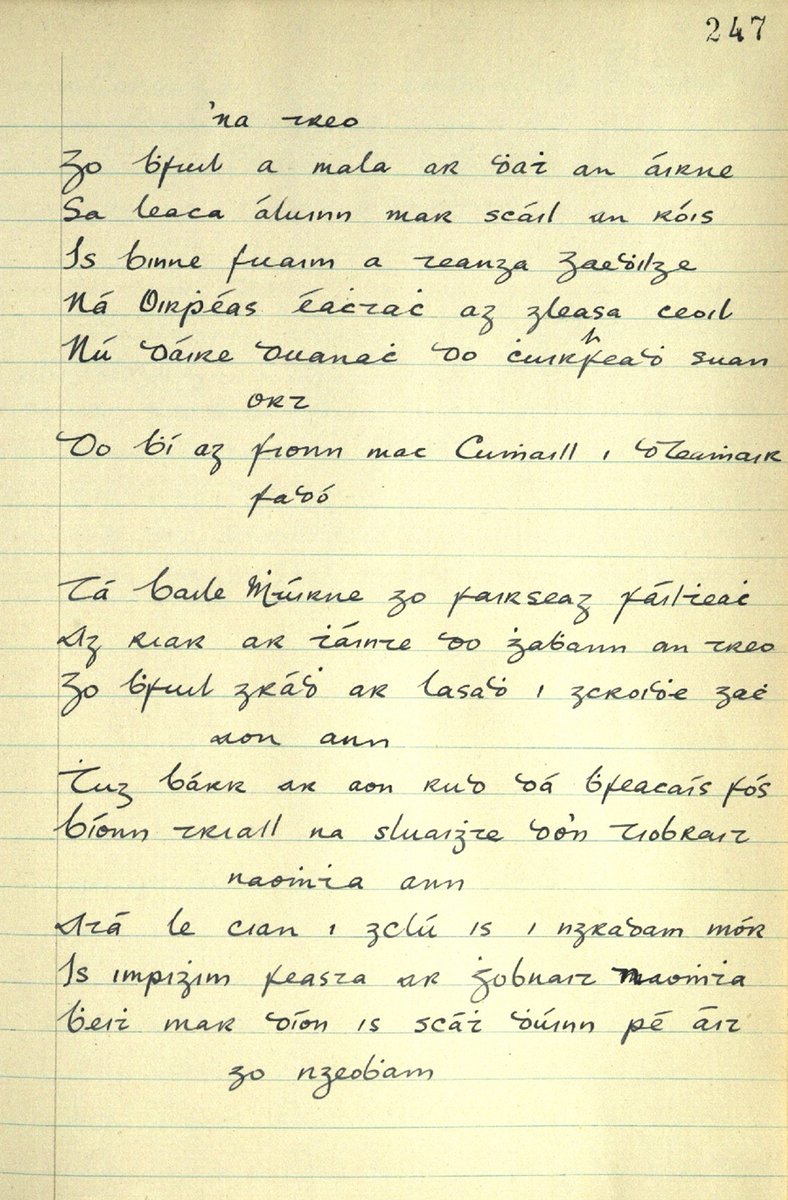 247
'na treo
Go ḃfuil a mala ar ḋaṫ an áirne
Sa leaca áluinn mar scáil an róis
Is binne fuaim a teanga Gaeḋilge
Ná Oirṗéas éaċtaċ ag gleasa ceoil
Nú Dáire Duanaċ do ċuirfheaḋ suan
ort
Do ḃí ag Fionn mac Cuṁaill i dTeaṁair
fadó
Tá Baile Ṁúirne go fairseag fáilteaċ
Ag riar ar ṫáinte do ġaḃann an treo
Go ḃfuil gráḋ ar lasaḋ i gcroiḋe gaċ
aon ann
Ṫug bárr ar aon rud dá ḃfeacaís fós
Bíonn triall na sluaiġte do'n tiobrait
naoṁta ann
Atá le cian i gclú is i ngradam mór
Is impiġim feasta ar Ġobnait naoṁta
Ḃeiṫ mar díon is scáṫ ḋúinn pé áit
go ngeoḃam